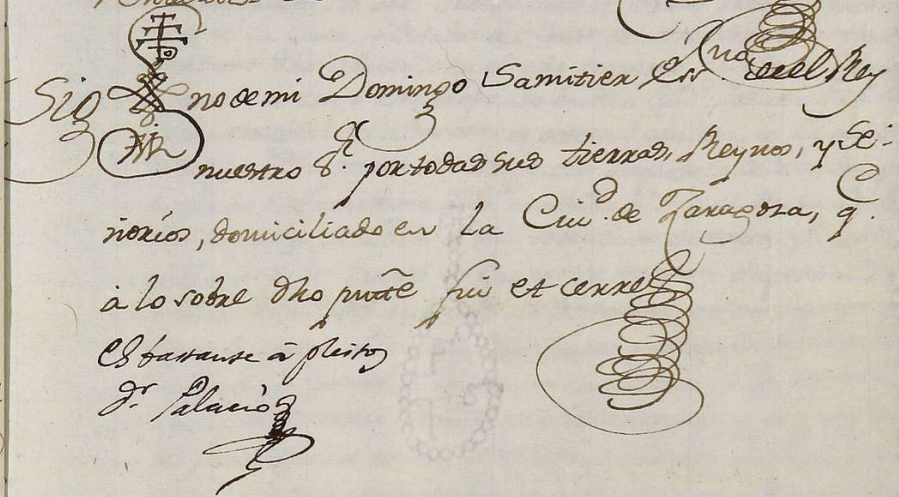 Sig no de mi Domingo Samitier Ess.no del Rey
nuestro S.r por todas sus tierras, Reynos, y Se-
ñorios, domiciliado en la Ciud. de Zaragoza, q.
à lo sobre dho pnte fui et cerre
Es bastante à pleitos
D.r Palacio